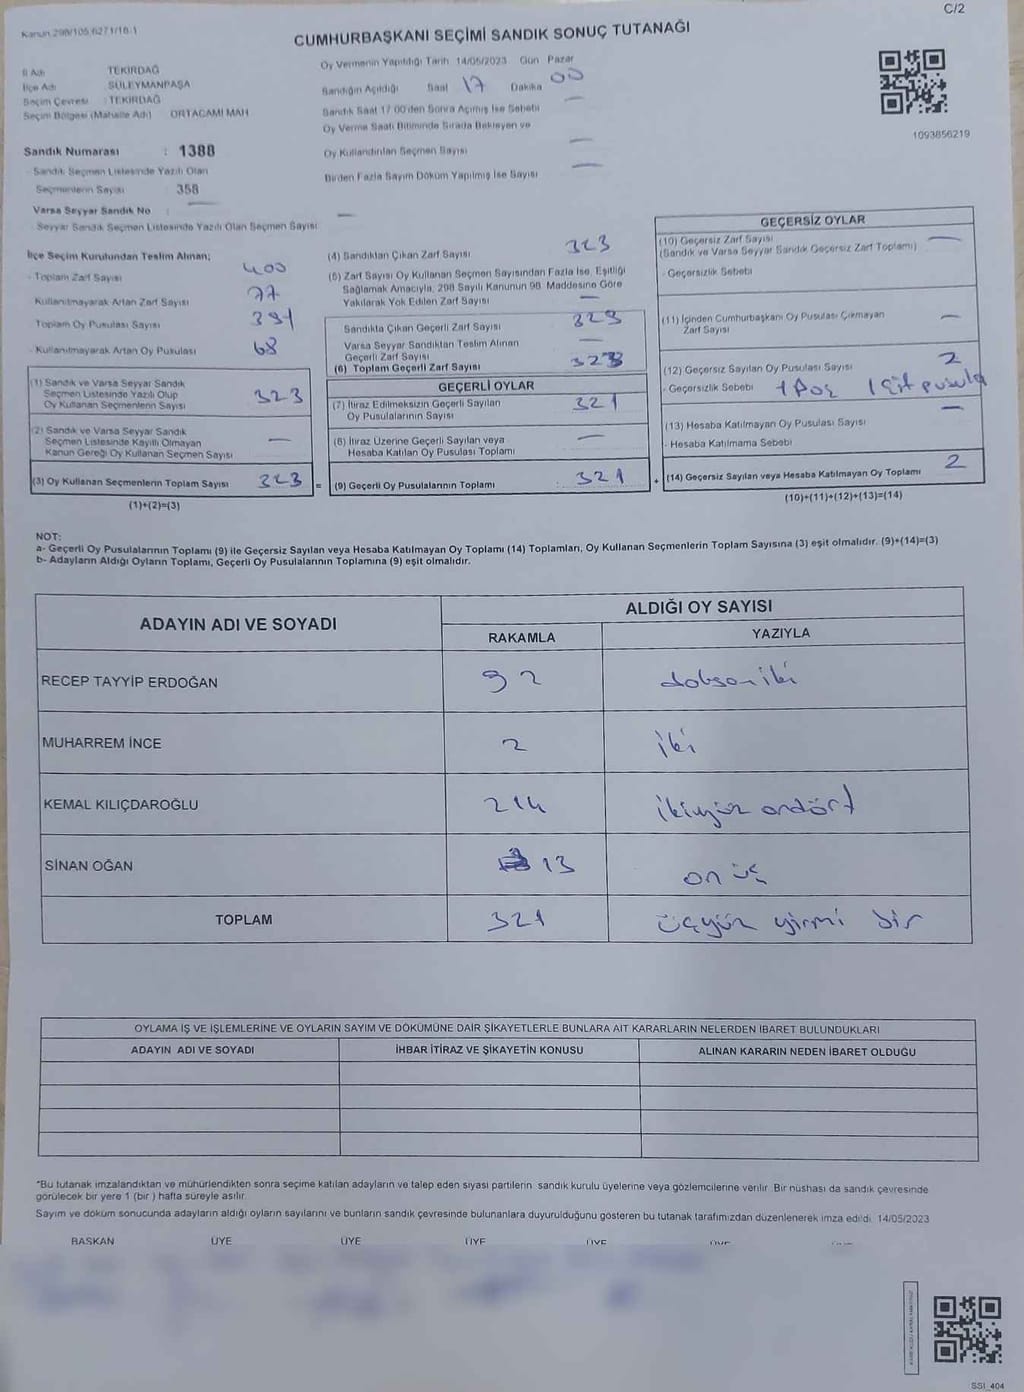 C/2
Kanun 298/105 6271/18-1
CUMHURBAŞKANI SEÇİMİ SANDIK SONUÇ TUTANAĞI
İl Adı TEKİRDAĞ
İlçe Adı SÜLEYMANPAŞA
Seçim Çevresi : TEKİRDAĞ
Seçim Bölgesi (Mahalle Adı) ORTACAMİ MAH
Sandık Numarası : 1388
- Sandık Seçmen Listesinde Yazılı Olan
Seçmenlerin Sayısı 358
Varsa Seyyar Sandık No : —
- Seyyar Sandık Seçmen Listesinde Yazılı Olan Seçmen Sayısı —
Oy Vermenin Yapıldığı Tarih 14/05/2023 Gün Pazar
Sandığın Açıldığı Saat 17 Dakika 00
Sandık Saat 17.00'den Sonra Açılmış İse Sebebi —
Oy Verme Saati Bitiminde Sırada Bekleyen ve
Oy Kullandırılan Seçmen Sayısı —
Birden Fazla Sayım Döküm Yapılmış İse Sayısı —
1093856219
İlçe Seçim Kurulundan Teslim Alınan;
- Toplam Zarf Sayısı 400
Kullanılmayarak Artan Zarf Sayısı 77
Toplam Oy Pusulası Sayısı 391
- Kullanılmayarak Artan Oy Pusulası 68
(1) Sandık ve Varsa Seyyar Sandık
Seçmen Listesinde Yazılı Olup
Oy Kullanan Seçmenlerin Sayısı 323
(2) Sandık ve Varsa Seyyar Sandık
Seçmen Listesinde Kayıtlı Olmayan
Kanun Gereği Oy Kullanan Seçmen Sayısı —
(3) Oy Kullanan Seçmenlerin Toplam Sayısı 323 =
(1)+(2)=(3)
(4) Sandıktan Çıkan Zarf Sayısı 323
(5) Zarf Sayısı Oy Kullanan Seçmen Sayısından Fazla İse, Eşitliği
Sağlamak Amacıyla, 298 Sayılı Kanunun 98. Maddesine Göre
Yakılarak Yok Edilen Zarf Sayısı —
Sandıkta Çıkan Geçerli Zarf Sayısı 323
Varsa Seyyar Sandıktan Teslim Alınan
Geçerli Zarf Sayısı —
(6) Toplam Geçerli Zarf Sayısı 323
GEÇERLİ OYLAR
(7) İtiraz Edilmeksizin Geçerli Sayılan
Oy Pusulalarının Sayısı 321
(8) İtiraz Üzerine Geçerli Sayılan veya
Hesaba Katılan Oy Pusulası Toplamı —
(9) Geçerli Oy Pusulalarının Toplamı : 321 +
GEÇERSİZ OYLAR
(10) Geçersiz Zarf Sayısı —
(Sandık ve Varsa Seyyar Sandık Geçersiz Zarf Toplamı)
- Geçersizlik Sebebi
(11) İçinden Cumhurbaşkanı Oy Pusulası Çıkmayan
Zarf Sayısı —
(12) Geçersiz Sayılan Oy Pusulası Sayısı 2
- Geçersizlik Sebebi 1 Boş 1 Çift pusula
(13) Hesaba Katılmayan Oy Pusulası Sayısı —
- Hesaba Katılmama Sebebi
(14) Geçersiz Sayılan veya Hesaba Katılmayan Oy Toplamı 2
(10)+(11)+(12)+(13)=(14)
NOT:
a- Geçerli Oy Pusulalarının Toplamı (9) ile Geçersiz Sayılan veya Hesaba Katılmayan Oy Toplamı (14) Toplamları, Oy Kullanan Seçmenlerin Toplam Sayısına (3) eşit olmalıdır. (9)+(14)=(3)
b- Adayların Aldığı Oyların Toplamı, Geçerli Oy Pusulalarının Toplamına (9) eşit olmalıdır.
ADAYIN ADI VE SOYADI ALDIĞI OY SAYISI
RAKAMLA YAZIYLA
RECEP TAYYİP ERDOĞAN 92 doksaniki
MUHARREM İNCE 2 iki
KEMAL KILIÇDAROĞLU 214 ikiyüz ondört
SİNAN OĞAN 13 on üç
TOPLAM 321 üçyüz yirmi bir
OYLAMA İŞ VE İŞLEMLERİNE VE OYLARIN SAYIM VE DÖKÜMÜNE DAİR ŞİKAYETLERLE BUNLARA AİT KARARLARIN NELERDEN İBARET BULUNDUKLARI
ADAYIN ADI VE SOYADI İHBAR İTİRAZ VE ŞİKAYETİN KONUSU ALINAN KARARIN NEDEN İBARET OLDUĞU
*Bu tutanak imzalandıktan ve mühürlendikten sonra seçime katılan adayların ve talep eden siyasi partilerin sandık kurulu üyelerine veya gözlemcilerine verilir. Bir nüshası da sandık çevresinde
görülecek bir yere 1 (bir ) hafta süreyle asılır.
Sayım ve döküm sonucunda adayların aldığı oyların sayılarını ve bunların sandık çevresinde bulunanlara duyurulduğunu gösteren bu tutanak tarafımızdan düzenlenerek imza edildi. 14/05/2023
BAŞKAN ÜYE ÜYE ÜYE ÜYE
SSI_404